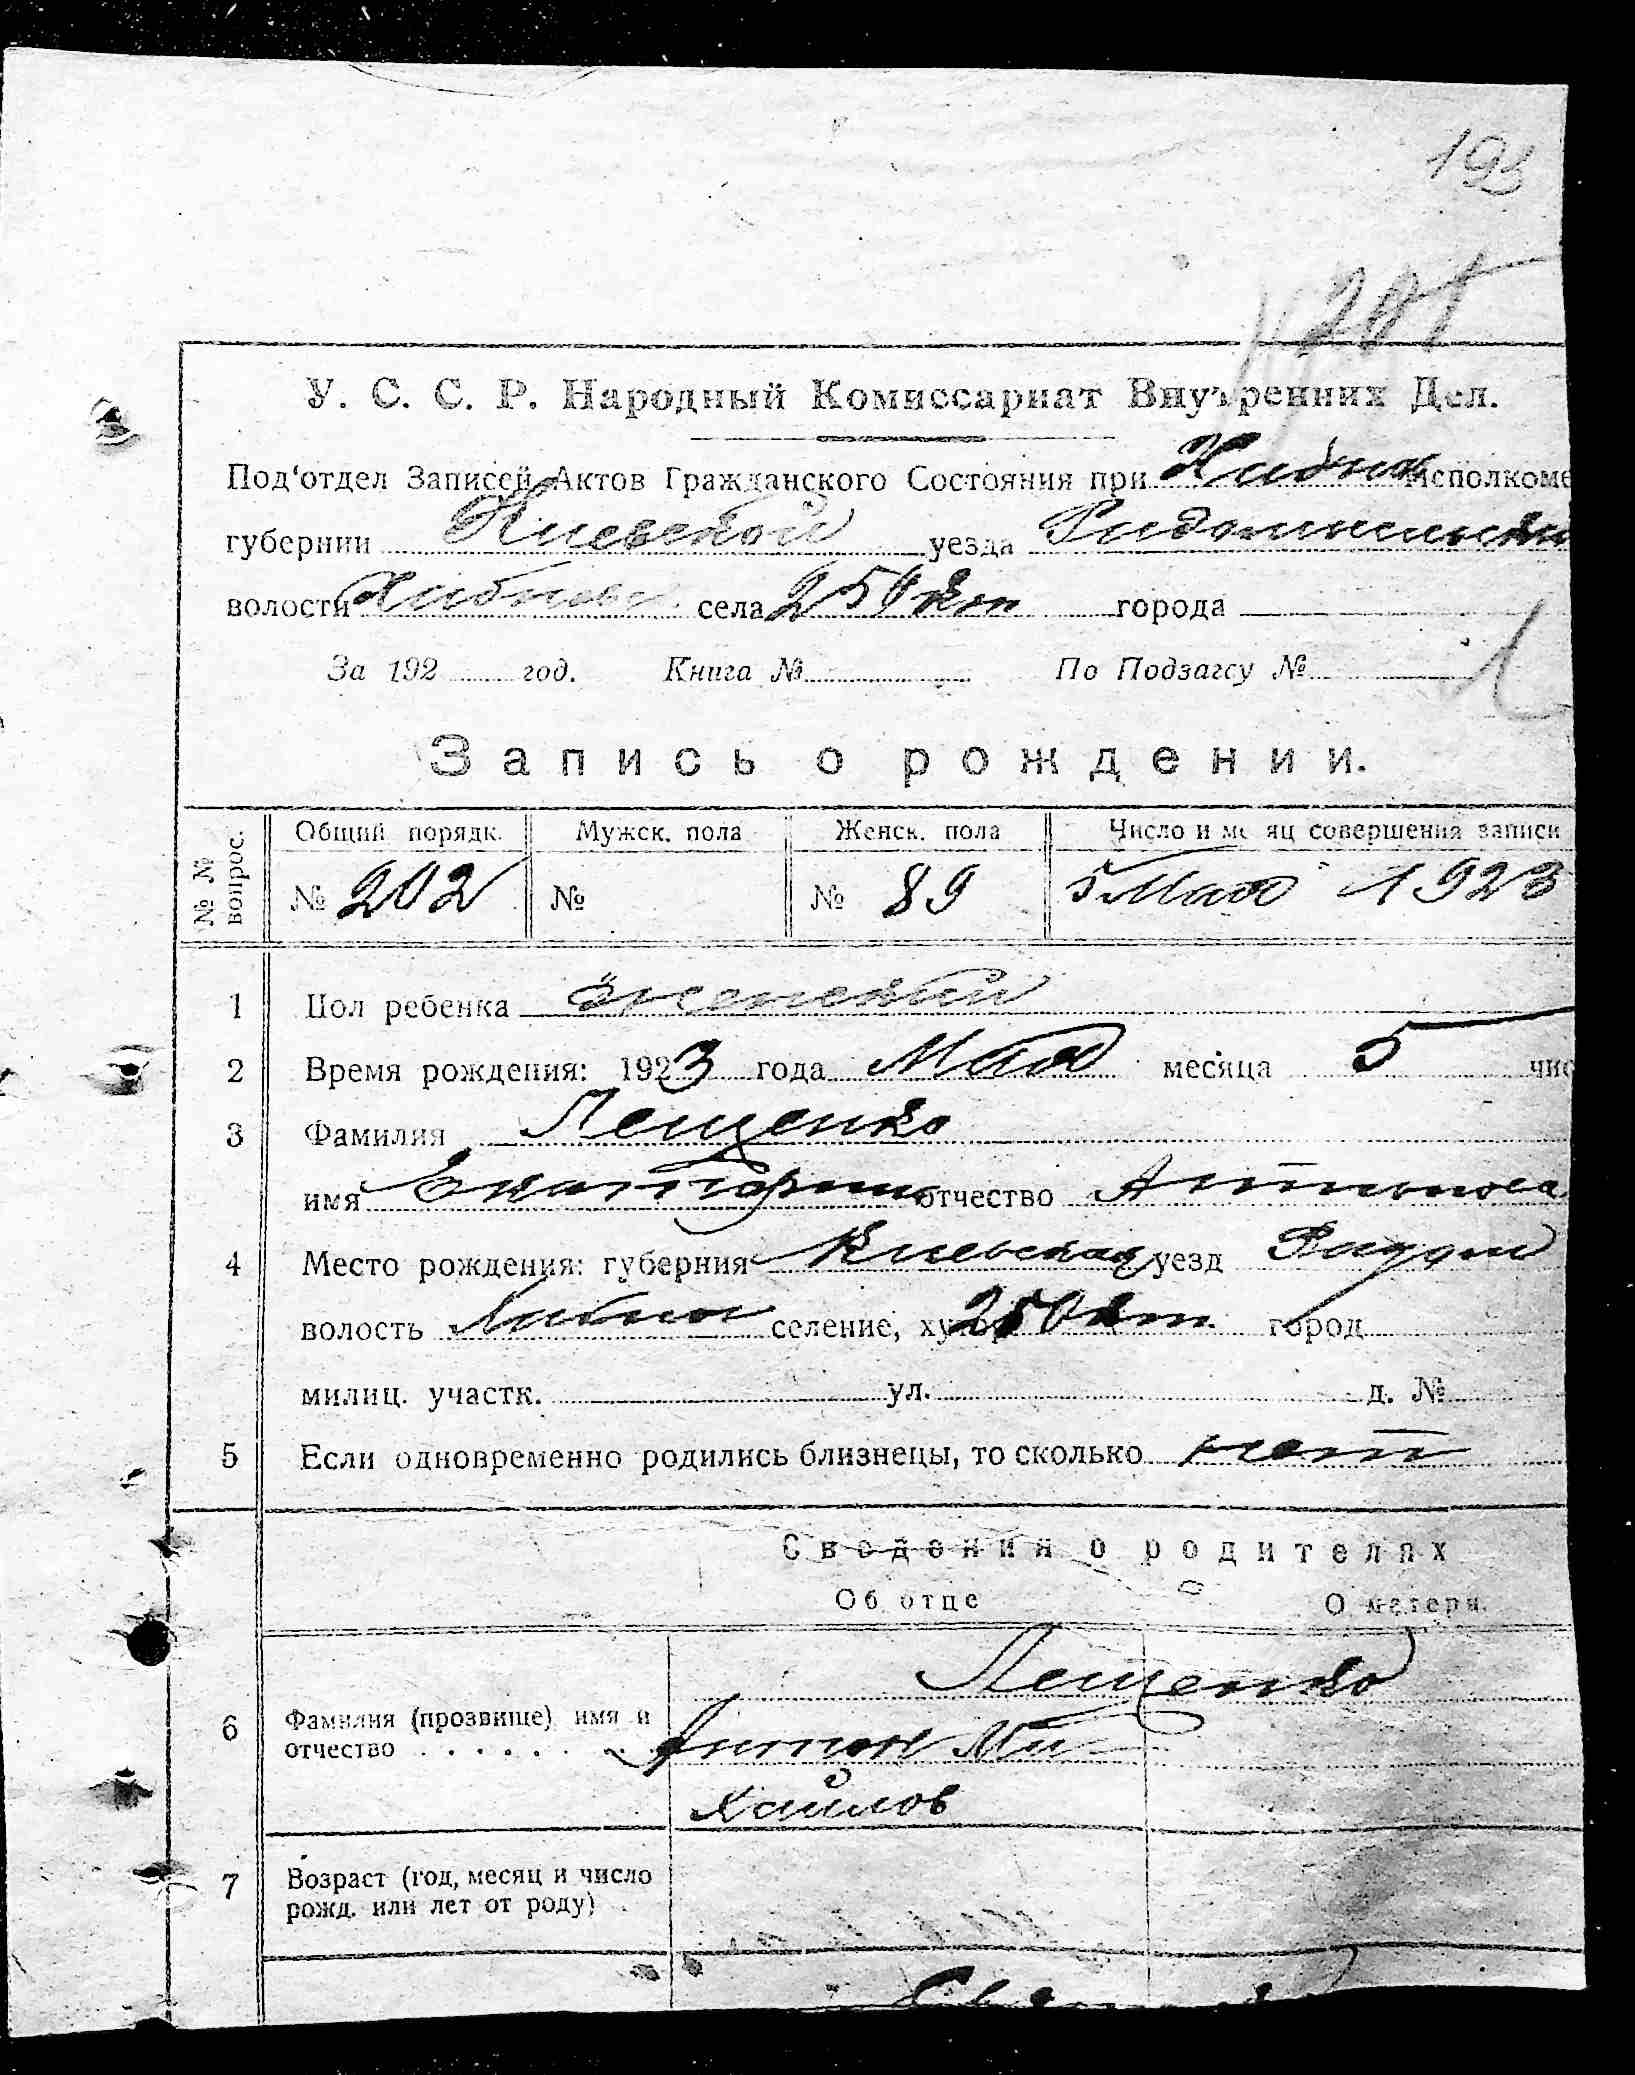 193
201
У. С. С. Р. Народный Комиссариат Внутренних Дел.
Под‘отдел Записей Актов Гражданского Состояния при Исполкоме
губернии Киевской уезда
волости села города
За 192 год. Книга № По Подзагсу №
Запись о рождении.
№ № вопрос. Общий порядк. Мужск. пола Женск. пола Число и месяц совершения записи
№ 202 № № 89 5 Мая 1923
1 Пол ребенка женский
2 Время рождения: 1923 года Мая месяца 5 чис
3 Фамилия Лещенко
имя Екатерина отчество Антонова
4 Место рождения: губерния Киевская уезд Радом
волость селение, хутор город
милиц. участк. ул. д. №
5 Если одновременно родились близнецы, то сколько нет
Сведения о родителях
Об отце О матери.
Лещенко
6 Фамилия (прозвище) имя и
отчество Антон Ми
хайлов
7 Возраст (год, месяц и число
рожд. или лет от роду)